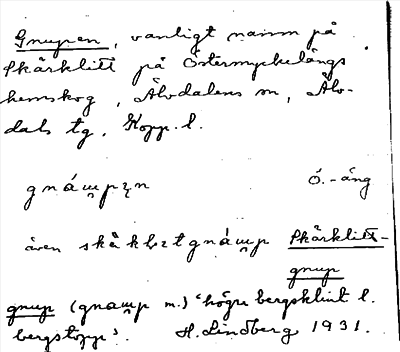 Gnupen, vanligt namn på
Skårklitt på Östermyckelängs
hemskog, Älvdalens sn, Älv-
dals tg, Kopp. l.
gnáɯpən Ö.-äng
även skåk gnáɯp Skårklitt-
gnup
gnup (gnaɯp m.) 'högre bergsklint l.
bergstopp'. H. Lindberg 1931.